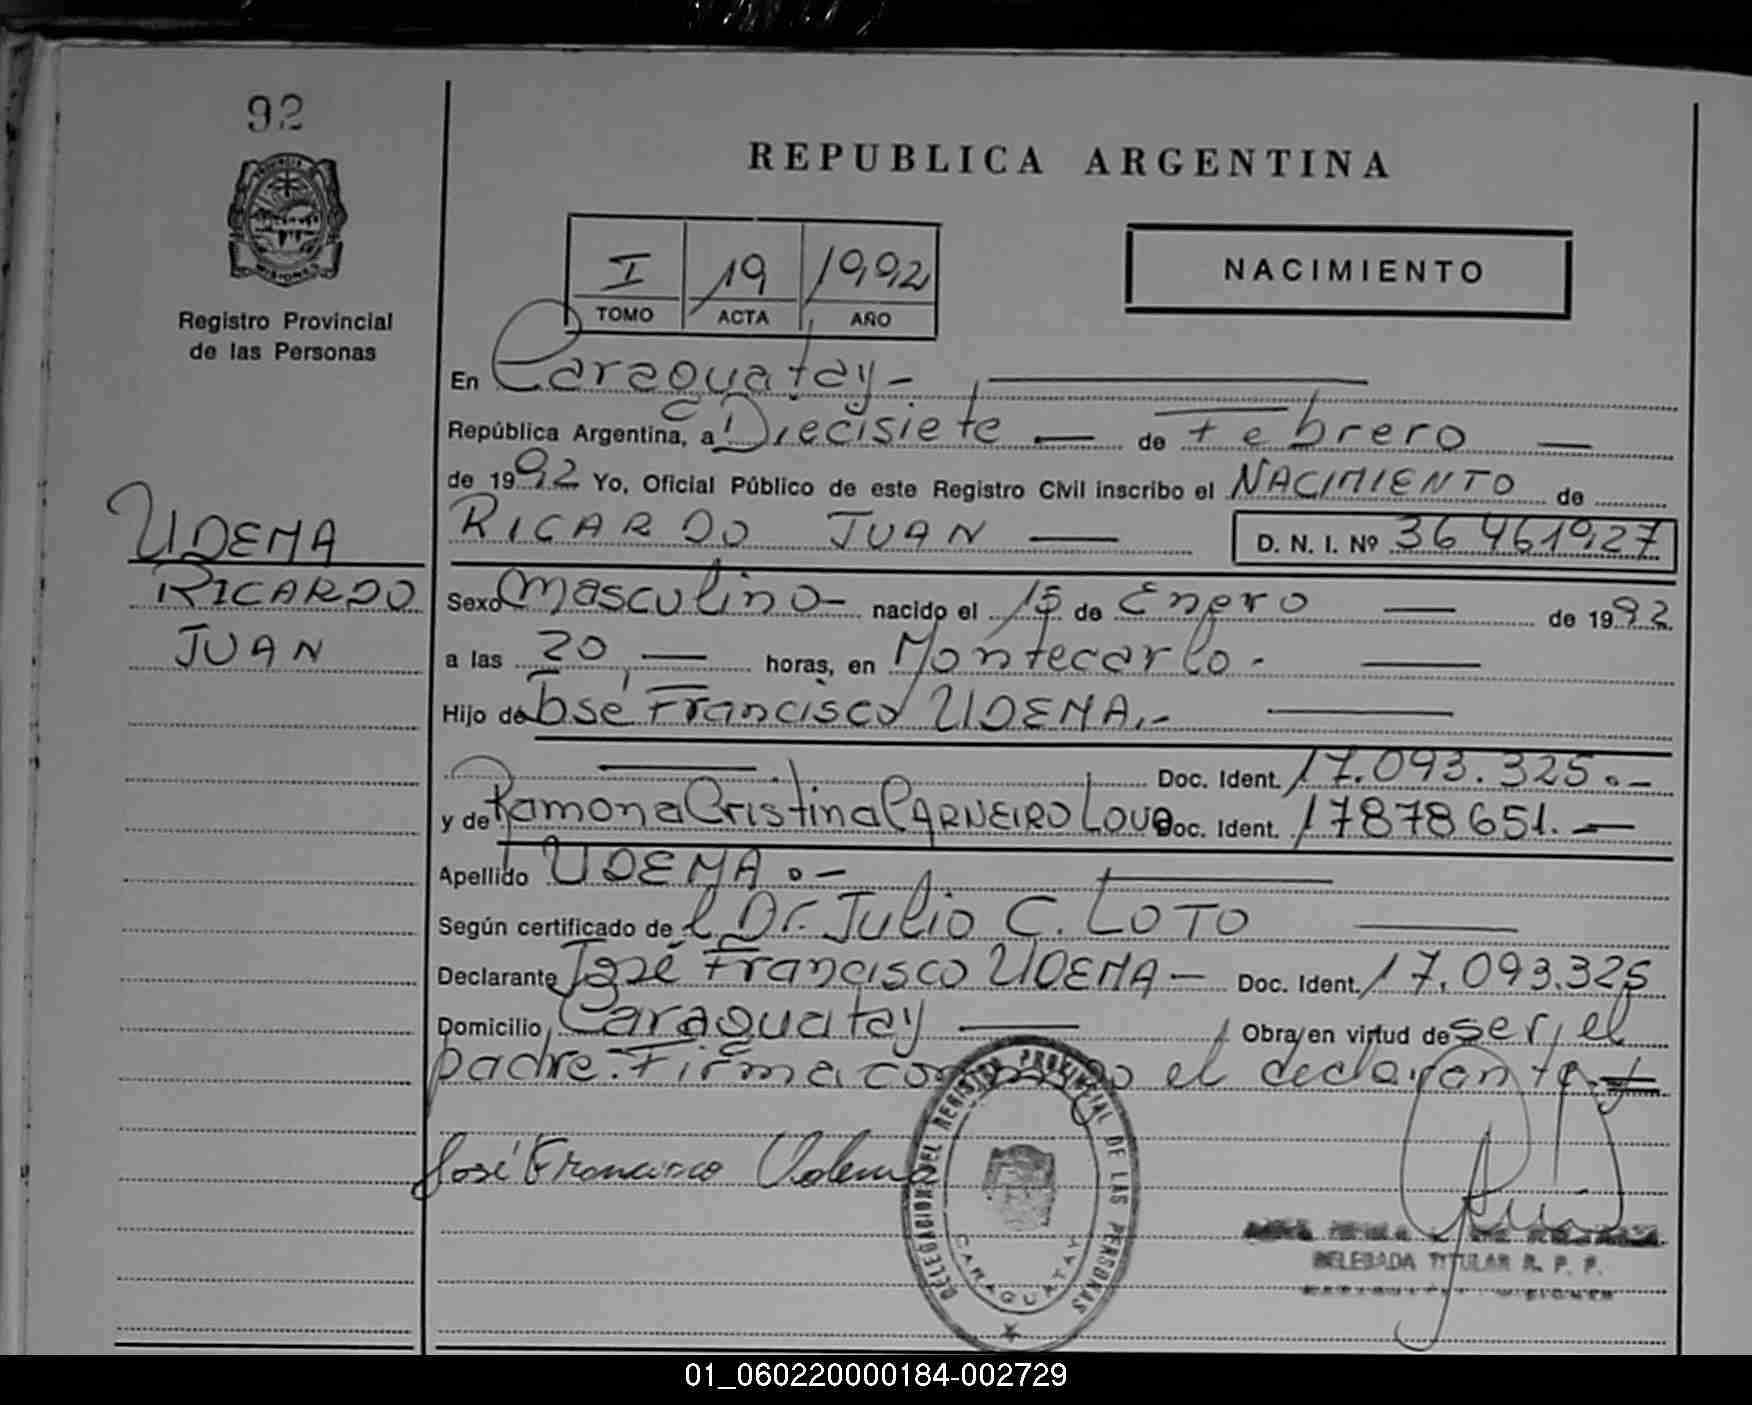 92
PROVINCIA
MISIONES
Registro Provincial
de las Personas
REPUBLICA ARGENTINA
I 19 1992
TOMO ACTA AÑO
NACIMIENTO
En Caraguatay -
República Argentina, a Diecisiete — de Febrero —
de 1992 Yo, Oficial Público de este Registro Civil inscribo el NACIMIENTO de
RICARDO JUAN — D. N. I. Nº 36461927
UDEMA
RICARDO
JUAN
Sexo Masculino - nacido el 15 de Enero — de 1992
a las 20, — horas, en Montecarlo.-
Hijo de José Francisco UDEMA.-
Doc. Ident. 17.093.325.-
y de Ramona Cristina CARNEIRO LOUO Doc. Ident. 17878651.-
Apellido UDEMA.-
Según certificado de l Dr. Julio C. LOTO
Declarante José Francisco UDEMA - Doc. Ident. 17.093.325
Domicilio Caraguatay — Obra en virtud de ser, el
padre. Firma conmigo el declarante.-
José Francisco Udema
DELEGACION DEL REGISTRO PROVINCIAL DE LAS PERSONAS
CARAGUATAY
DELEGADA TITULAR R. P. P.
MISIONES
01_060220000184-002729